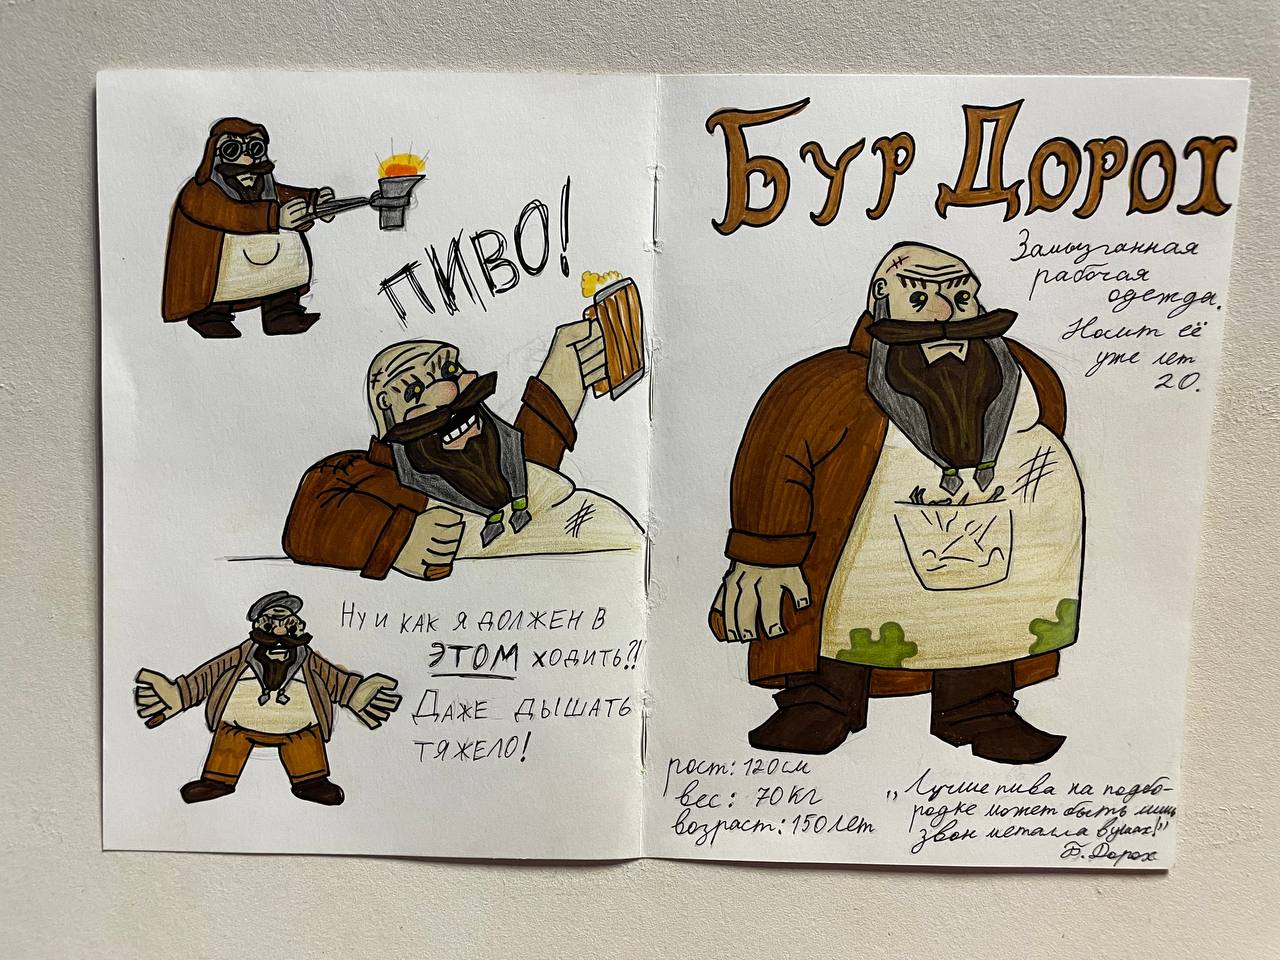 ПИВО!
НУ И КАК Я ДОЛЖЕН В
ЭТОМ ХОДИТЬ?!
ДАЖЕ ДЫШАТЬ
ТЯЖЕЛО!
Бур Дорох
Замызганная
рабочая
одежда.
Носит её
уже лет
20.
рост: 120см
вес: 70кг
возраст: 150лет
„Лучше пива на подбо-
родке может быть лишь
звон металла в ушах!"
Б. Дорох